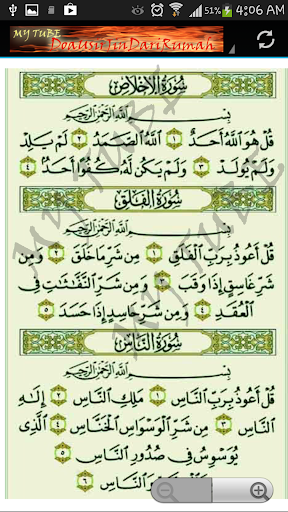 51% 4:06 AM
MY TUBE DoaUsirJinDariRumah
سُورَةُ الإِخْلَاصِ
بِسْمِ ٱللَّهِ ٱلرَّحْمَٰنِ ٱلرَّحِيمِ
قُلْ هُوَ ٱللَّهُ أَحَدٌ ١ ٱللَّهُ ٱلصَّمَدُ ٢ لَمْ يَلِدْ
وَلَمْ يُولَدْ ٣ وَلَمْ يَكُن لَّهُ كُفُوًا أَحَدٌ ٤
سُورَةُ الفَلَقِ
بِسْمِ ٱللَّهِ ٱلرَّحْمَٰنِ ٱلرَّحِيمِ
قُلْ أَعُوذُ بِرَبِّ ٱلْفَلَقِ ١ مِن شَرِّ مَا خَلَقَ ٢ وَمِن
شَرِّ غَاسِقٍ إِذَا وَقَبَ ٣ وَمِن شَرِّ ٱلنَّفَّٰثَٰتِ فِى
ٱلْعُقَدِ ٤ وَمِن شَرِّ حَاسِدٍ إِذَا حَسَدَ ٥
سُورَةُ النَّاسِ
بِسْمِ ٱللَّهِ ٱلرَّحْمَٰنِ ٱلرَّحِيمِ
قُلْ أَعُوذُ بِرَبِّ ٱلنَّاسِ ١ مَلِكِ ٱلنَّاسِ ٢ إِلَٰهِ
ٱلنَّاسِ ٣ مِن شَرِّ ٱلْوَسْوَاسِ ٱلْخَنَّاسِ ٤ ٱلَّذِى
يُوَسْوِسُ فِى صُدُورِ ٱلنَّاسِ ٥
وَٱلنَّاسِ ٦
MY TUBE
MY TUBE